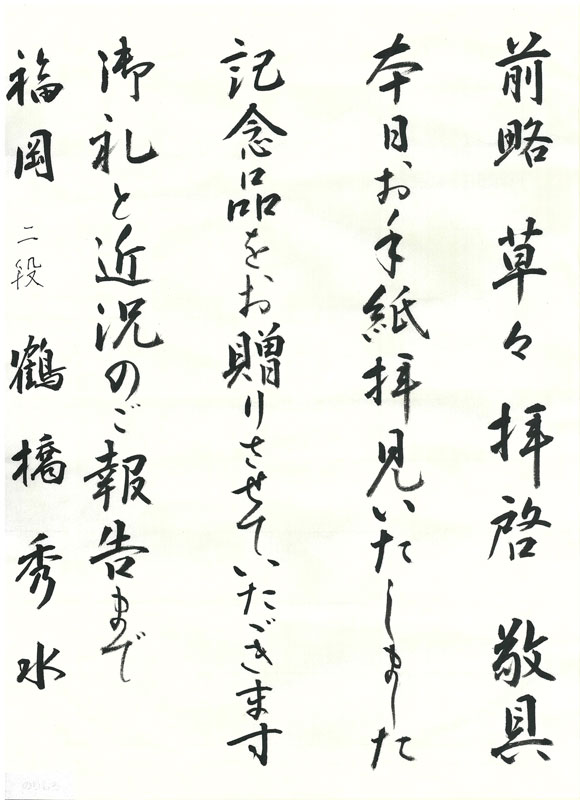 前略 草々 拝啓 敬具
本日お手紙拝見いたしました
記念品をお贈りさせていただきます
御礼と近況のご報告まで
福岡 二段 鶴橋秀水